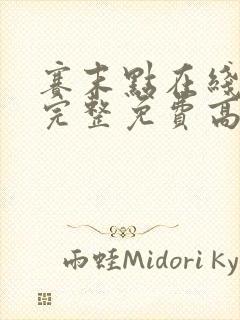 賽末點在綫
完整免費高
雨蛙Midori Ky